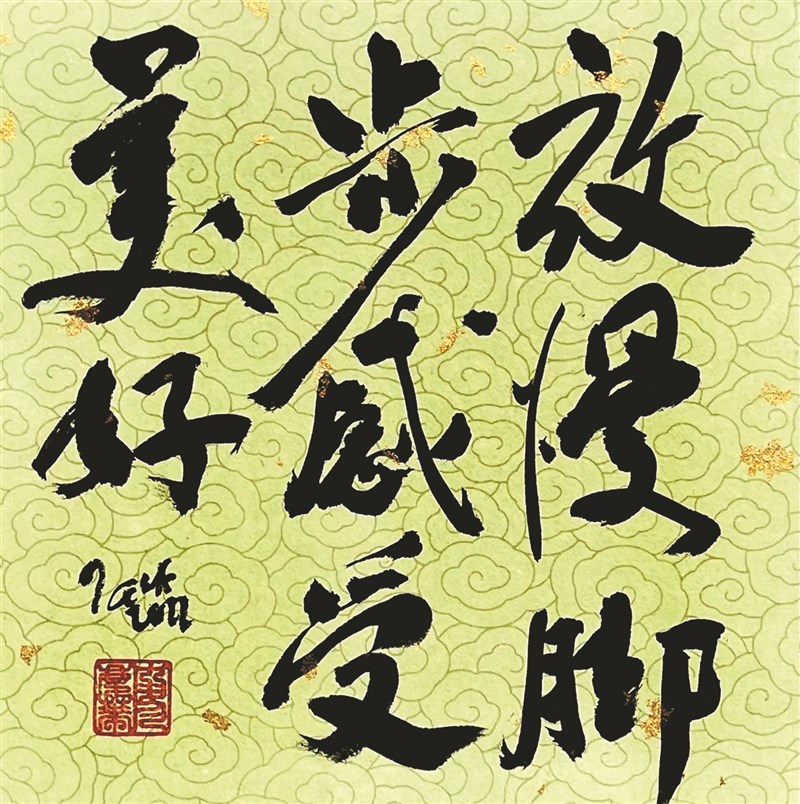 放慢脚
步感受
美好